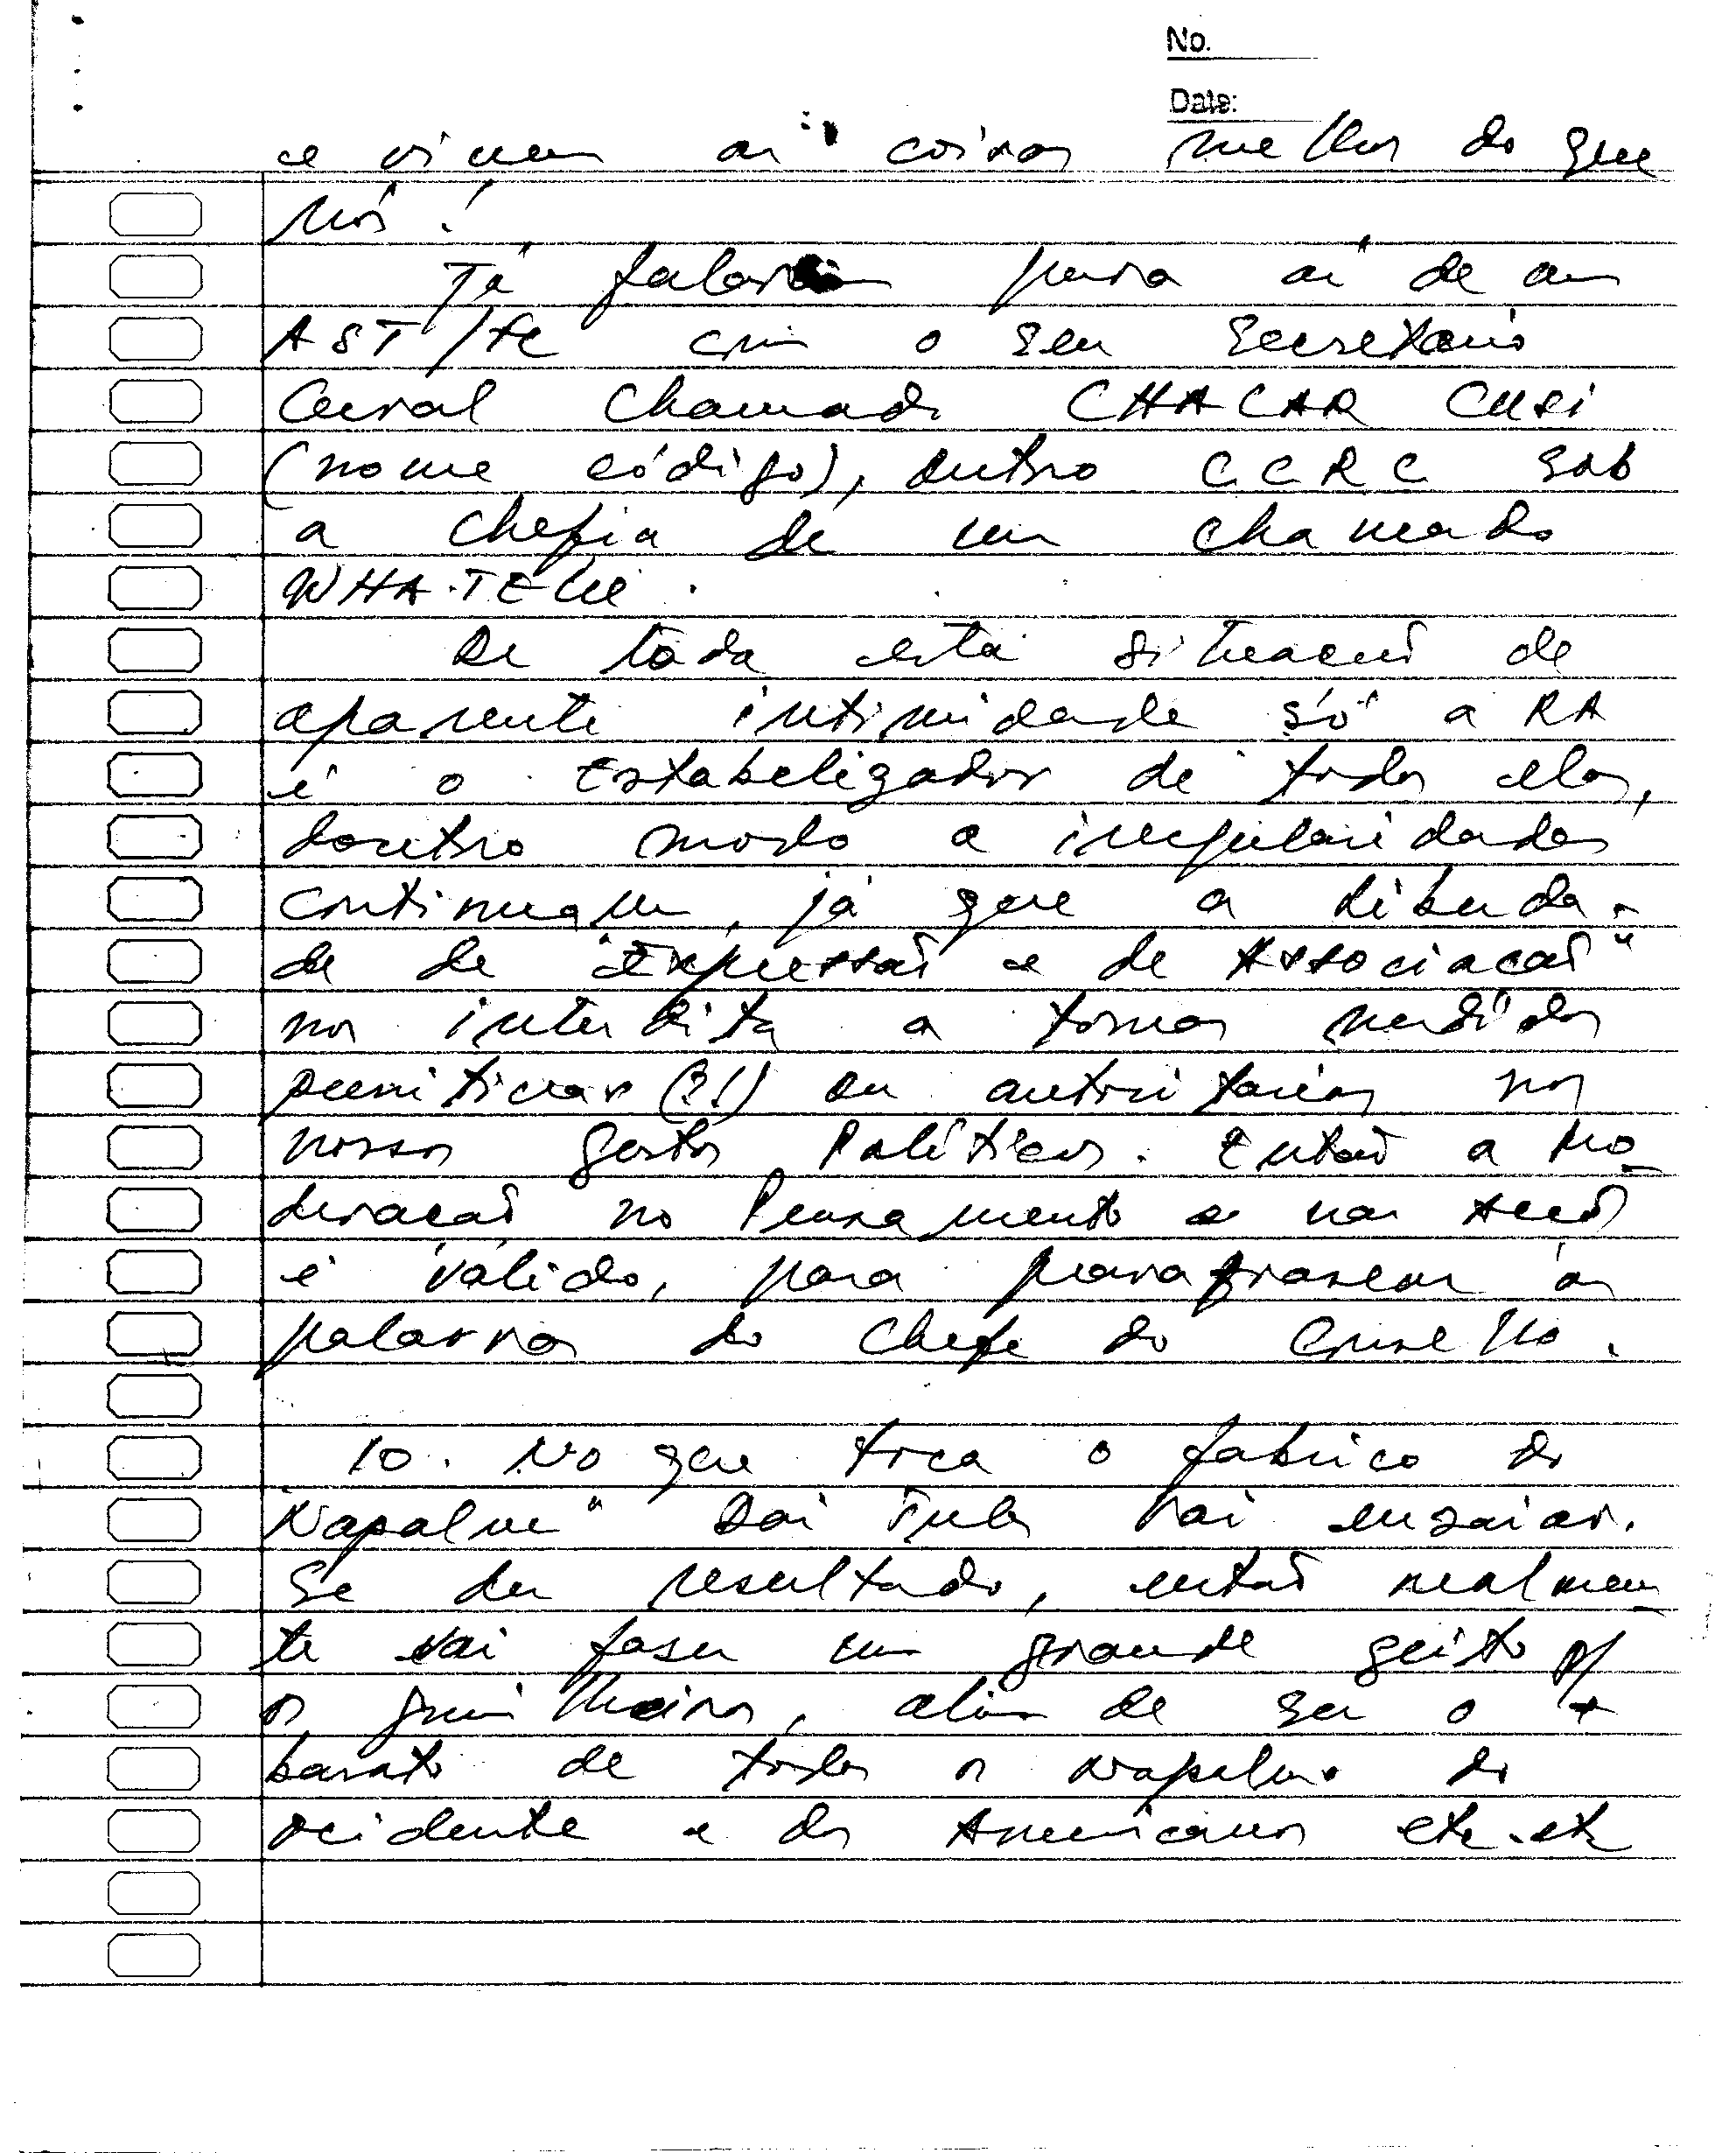 No.
Date:
e viram as coisas melhor do que
nós!
Já falaram para aí de um
AST/FC com o seu Secretário
Geral chamado CHACAR CUSI
(nome código), outro C.C.R.C. sob
a chefia de um chamado
WHA-TELI.
De toda esta situação de
aparente intimidade só a RA
é o Estabeligador de todos elas,
doutro modo a irregularidades
continuam, já que a Liberda-
de de "Expressão e de Associação"
nos interdita a tomar medidas
punitivas (?!) ou autoritárias nos
nossos gestos Políticos. Então a Mo-
deração no Pensamento e nas Acções
é válido, para parafrasear as
palavras do Chefe do Conselho.
10. No que toca o fabrico do
Napalm" Sai vai ensaiar.
Se der resultado, então realmen-
te vai fazer um grande geito p/
os guerrilheiros, além de ser o +
barato de todos os Napalms do
Ocidente e dos Americanos etc. etc